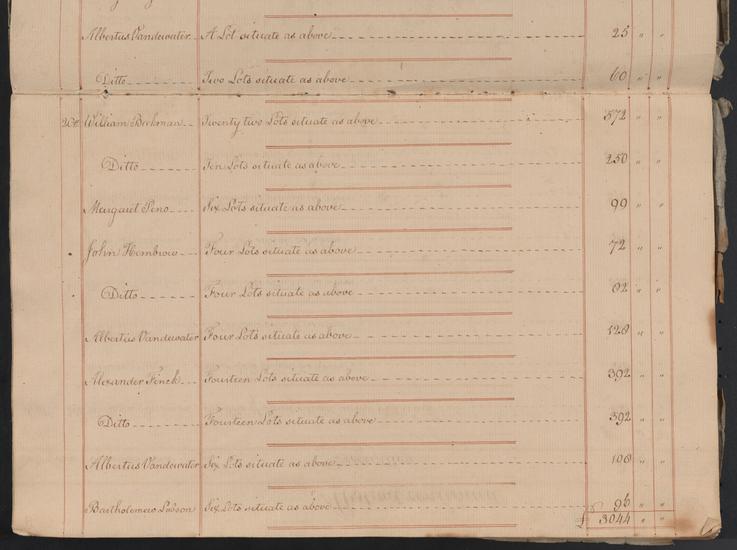 Albertus Vandewater A Lot situate as above 25 " "
Ditto Two Lots situate as above 60 " "
William Beekman Twenty two Lots situate as above 572 " "
Ditto Ten Lots situate as above 250 " "
Margaret Six Lots situate as above 99 " "
John Four Lots situate as above 72 " "
Ditto Four Lots situate as above 92 " "
Albertus Vandewater Four Lots situate as above 128 " "
Alexander Finck Fourteen Lots situate as above 392 " "
Ditto Fourteen Lots situate as above 392 " "
Albertus Vandewater Six Lots situate as above 108 " "
Bartholemew Six Lots situate as above 96 " "
£ 3044 " "